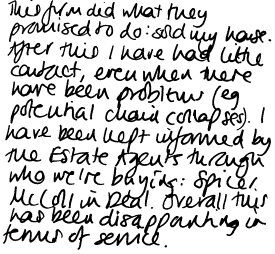 This firm did what they
promised to do: sold my house.
After this I have had little
contact, even when there
have been problems (eg
potential chain collapses). I
have been kept informed by
the Estate Agents through
who we're buying: Spicer
McColl in Deal. Overall this
has been disappointing in
terms of service.